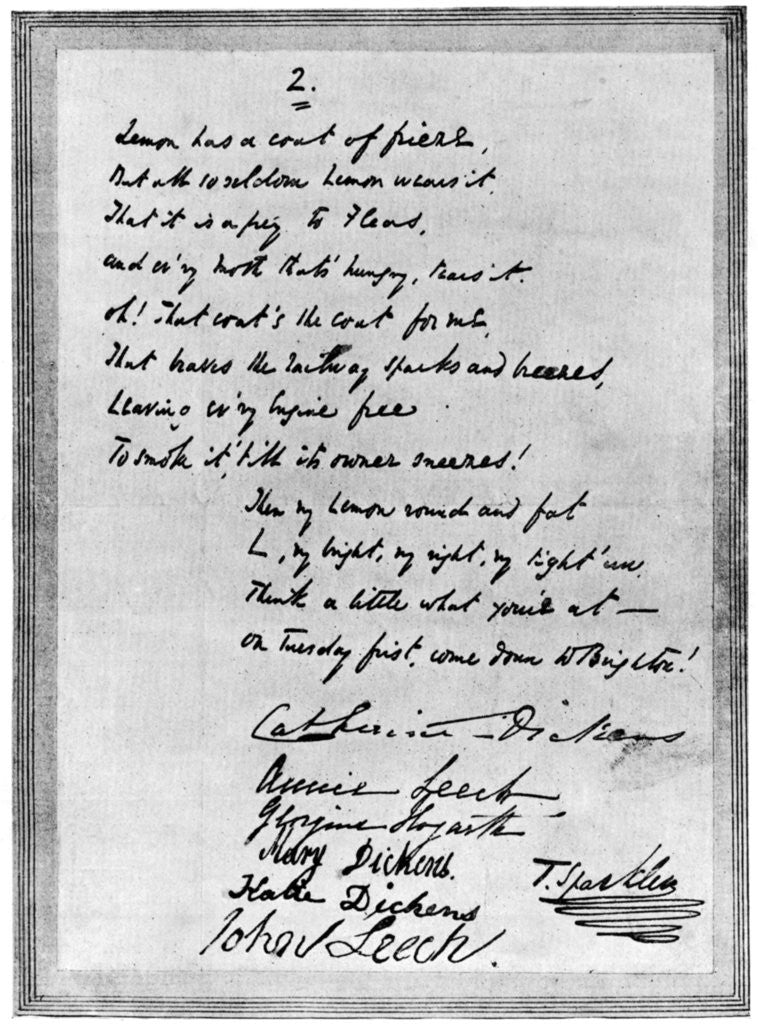 2.
Lemon has a coat of frieze,
But all so seldom Lemon wears it
That it is a prey to Fleas,
and ev'ry moth that's hungry, tears it.
oh! That coat's the coat for me,
That braves the railway sparks and breezes,
Leaving ev'ry Engine free
To smoke it, 'till its owner sneezes!
Then my Lemon round and fat
L, my bright, my right, my tight 'un,
Think a little what you're at —
on Tuesday first, come down to Brighton!
Catherine Dickens
Annie Leech
Georgina Hogarth
Mary Dickens.
T. Sparkler
Katie Dickens
John Leech.